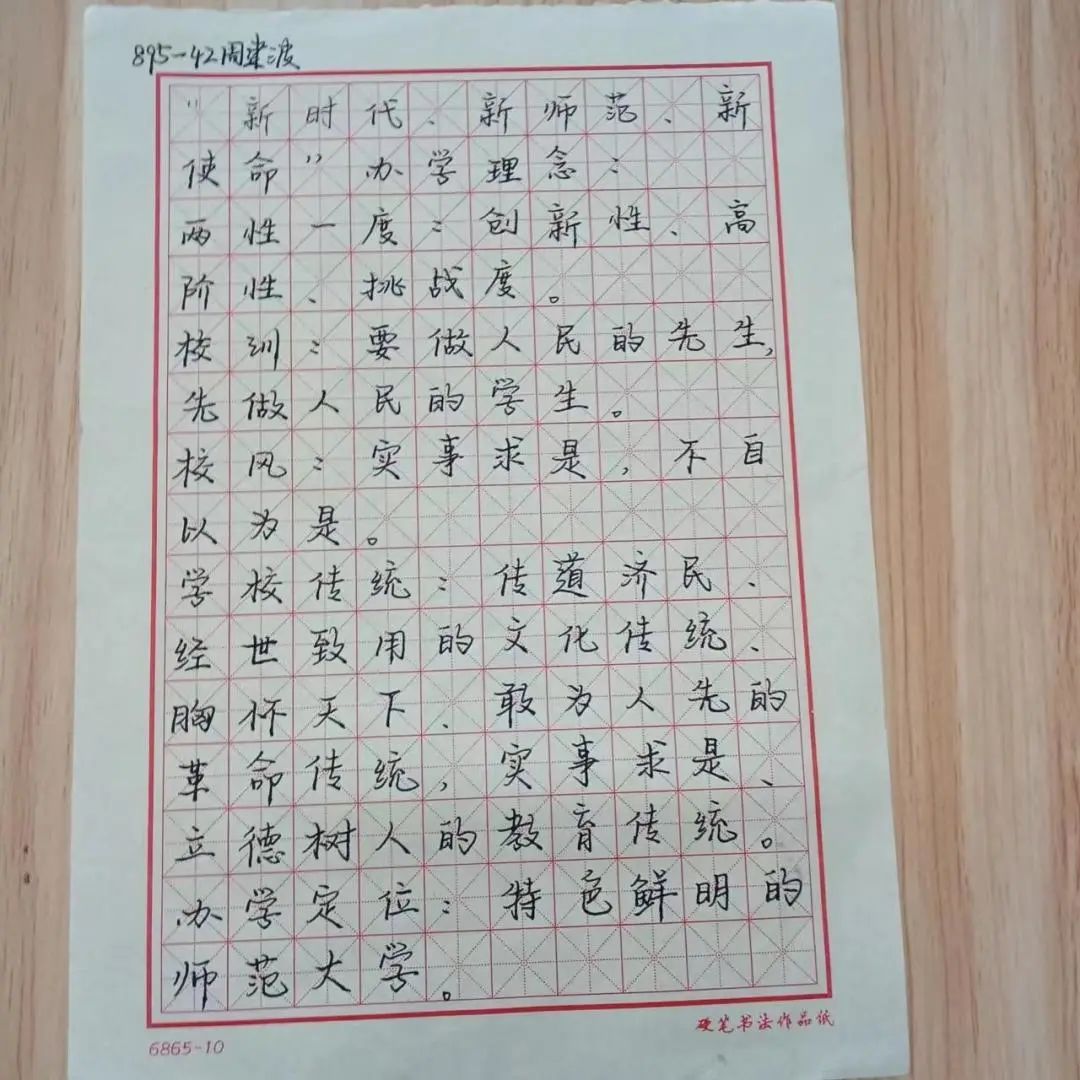 895-42周建波
“新时代、新师范、新
使命”办学理念：
两性一度：创新性、高
阶性、挑战度。
校训：要做人民的先生，
先做人民的学生。
校风：实事求是，不自
以为是。
学校传统：传道济民、
经世致用的文化传统、
胸怀天下、敢为人先的
革命传统，实事求是、
立德树人的教育传统。
办学定位：特色鲜明的
师范大学。
硬笔书法作品纸
6865-10